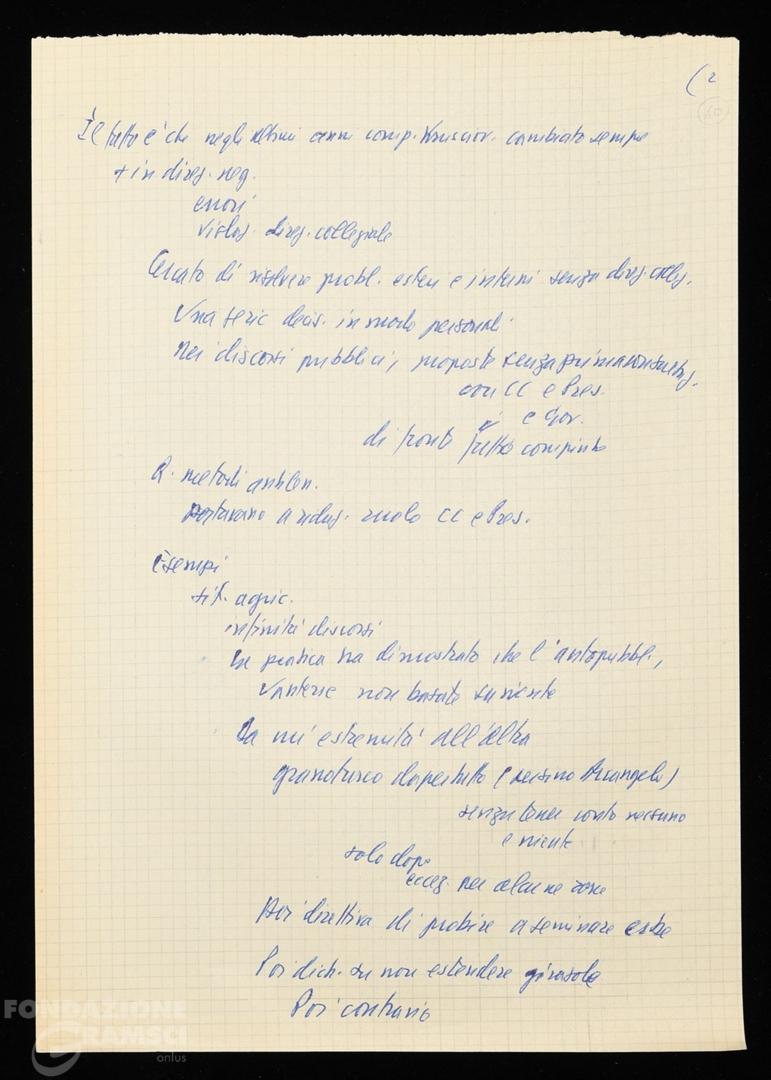 ( 2
40
Il fatto è che negli ultimi anni comp. Krusciov. cambiato sempre
+ in direz. neg.
errori
violaz. direz. collegiale
Cercato di risolvere probl. esteri e interni senza direz. colleg.
Una serie decis. in modo personali
Nei discorsi pubblici, proposte senza prima consultaz.
con CC e Pres.
e Gov.
di fronte fatto compiuto
Q. metodi antilen.
portavano a riduz. ruolo CC e Pres.
Esempi
sit. agric.
infiniti discorsi
La pratica ha dimostrato che l'autopubbl.,
vanterie non basate su niente
Da un'estremità all'altra
granoturco dapertutto (persino Arcangelo)
senza tener conto nessuno
e niente
solo dopo
eccez. per alcune zone
Poi direttiva di proibire a seminare erbe
Poi dich. su non estendere girasole
Poi contrario
FONDAZIONE
GRAMSCI
onlus